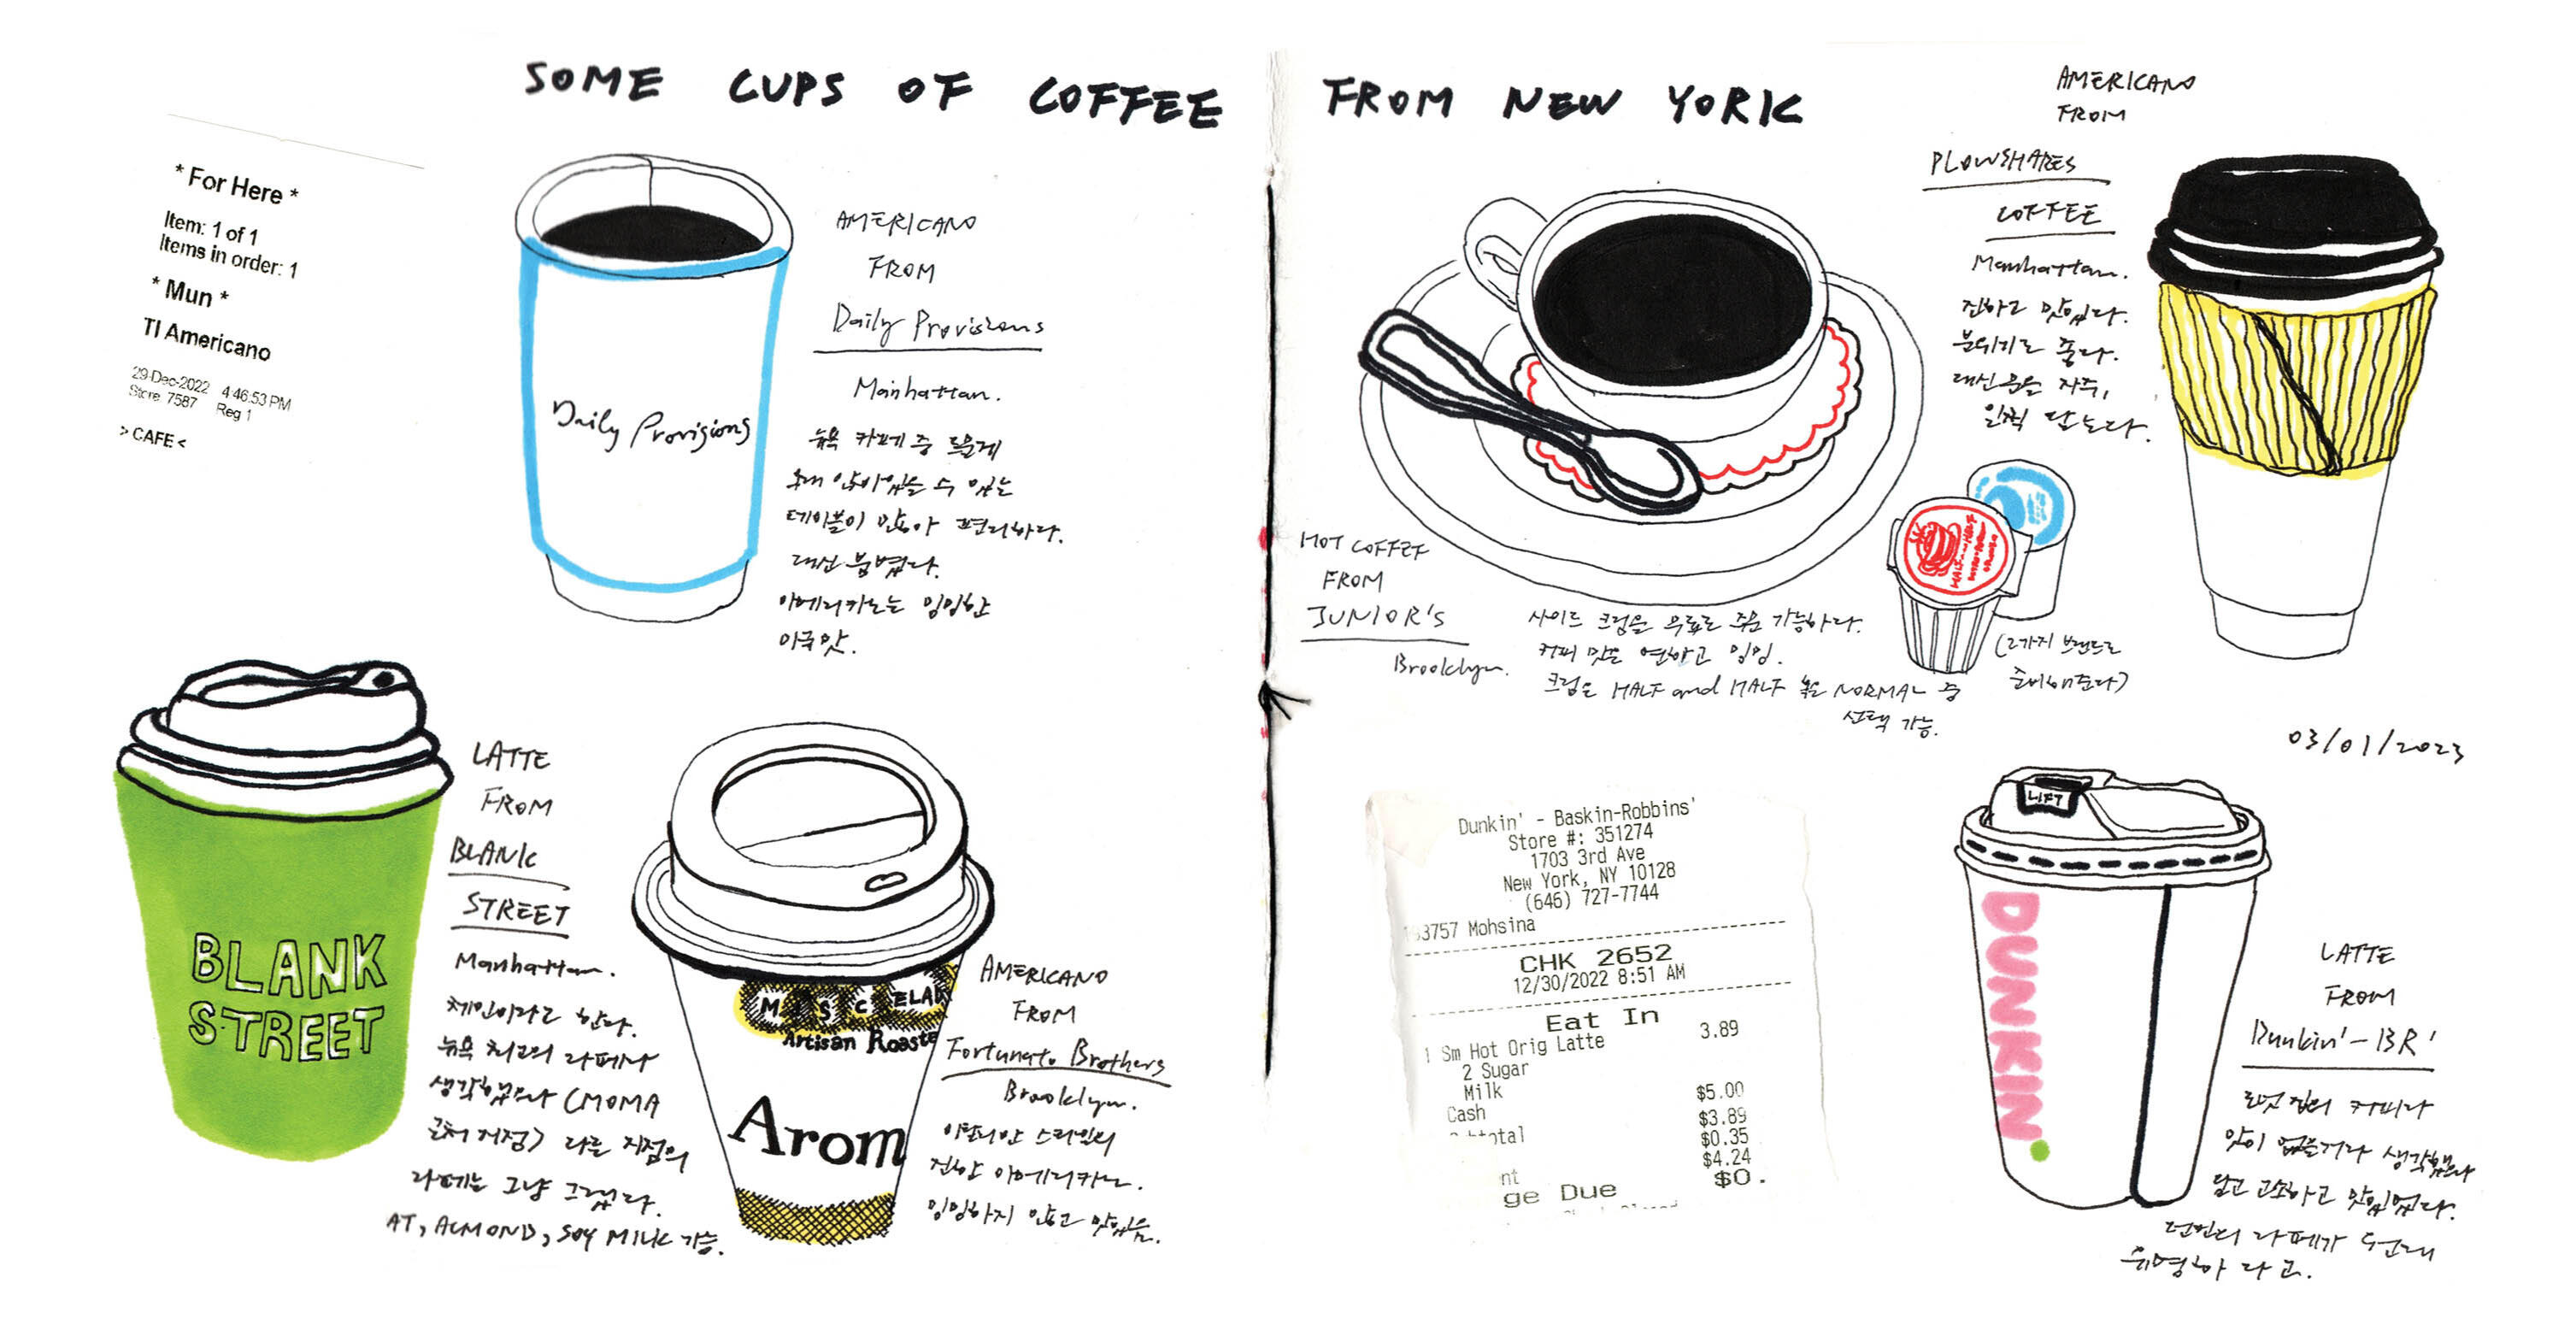 SOME CUPS OF COFFEE FROM NEW YORK
* For Here *
Item: 1 of 1
Items in order: 1
* Mun *
TI Americano
29-Dec-2022 4:46:53 PM
Store 7587 Reg 1
> CAFE <
Daily Provisions
AMERICANO
FROM
Daily Provisions
Manhattan.
뉴욕 카페 중 드물게
오래 앉아있을 수 있는
테이블이 많아 편리하다.
대신 붐볐다.
아메리카노는 밍밍한
미국맛.
BLANK
STREET
LATTE
FROM
BLANK
STREET
Manhattan.
체인이라고 한다.
뉴욕 최고의 라떼라
생각했으나 (MOMA
근처 지점) 다른 지점의
라떼는 그냥 그랬다.
AT, ALMOND, SOY MILK 가능.
M S C ELAN
Artisan Roaste
Arom
AMERICANO
FROM
Fortunato Brothers
Brooklyn.
이탈리안 스타일의
진한 아메리카노.
밍밍하지 않고 맛있음.
HOT COFFEE
FROM
JUNIOR'S
Brooklyn.
사이드 크림을 무료로 주문 가능하다.
커피 맛은 연하고 밍밍.
크림은 HALF and HALF 혹은 NORMAL 중
선택 가능.
HALF HALF
(2가지 브랜드로
준비해준다)
AMERICANO
FROM
PLOWSHARES
COFFEE
Manhattan.
진하고 맛있다.
분위기도 좋다.
대신 문을 자주,
일찍 닫는다.
03/01/2023
Dunkin' - Baskin-Robbins'
Store #: 351274
1703 3rd Ave
New York, NY 10128
(646) 727-7744
3757 Mohsina
CHK 2652
12/30/2022 8:51 AM
Eat In
1 Sm Hot Orig Latte 3.89
2 Sugar
Milk
Cash $5.00
total $3.89
$0.35
nt $4.24
ge Due $0.
LIFT
DUNKIN'
LATTE
FROM
Dunkin'-BR'
도넛 집의 커피라
맛이 없을거라 생각했으나
달고 고소하고 맛있었다.
던킨의 라떼가 원래
유명하다고.